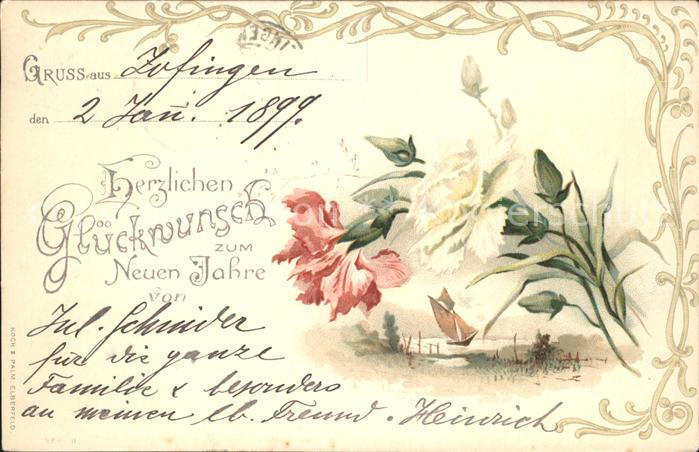 GRUSS aus Zofingen
den 2 Jan. 1899.
Herzlichen
Glückwunsch
zum
Neuen Jahre
von
Jul. Schnider
für die ganze
Familie & besonders
an meinen lb. Freund. Heinrich
KOCH & PALM, ELBERFELD